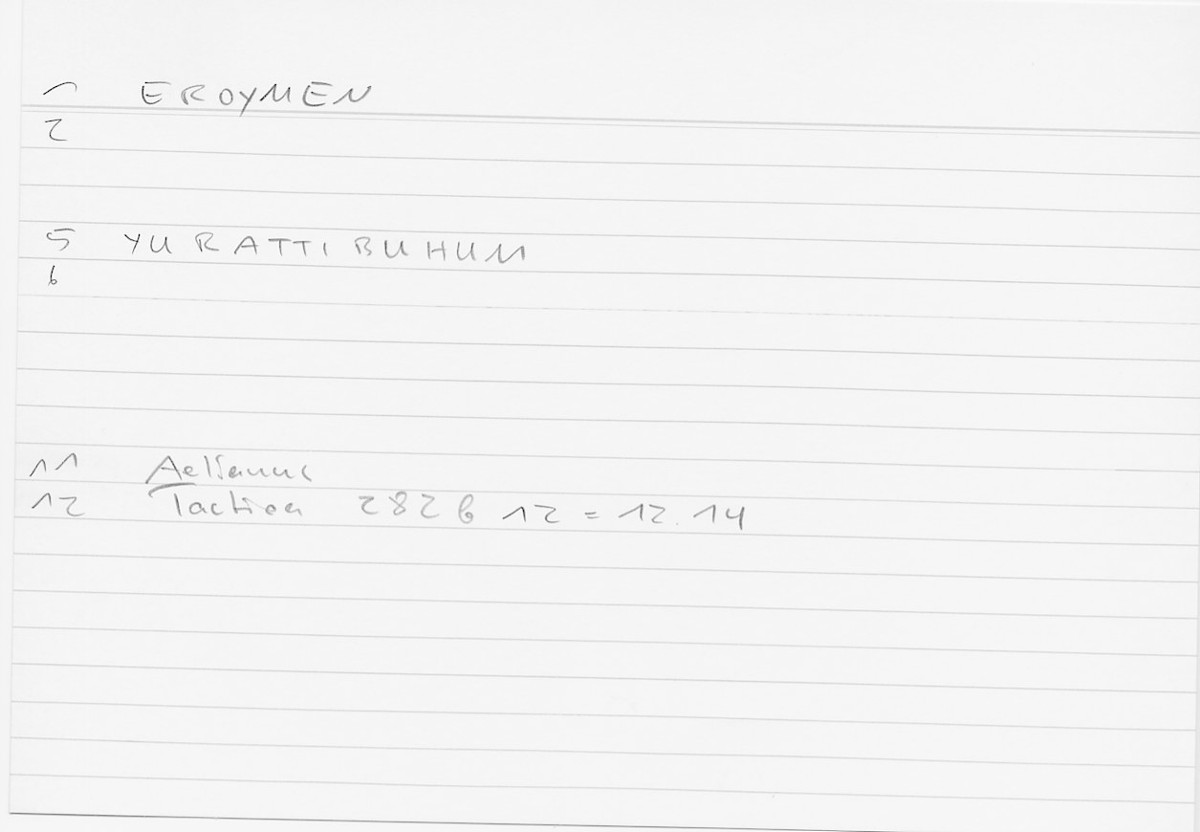 1 EROYMEN
2
5 YURATTIBUHUM
6
11 Aelianus
12 Tactica 282 b 12 = 12.14